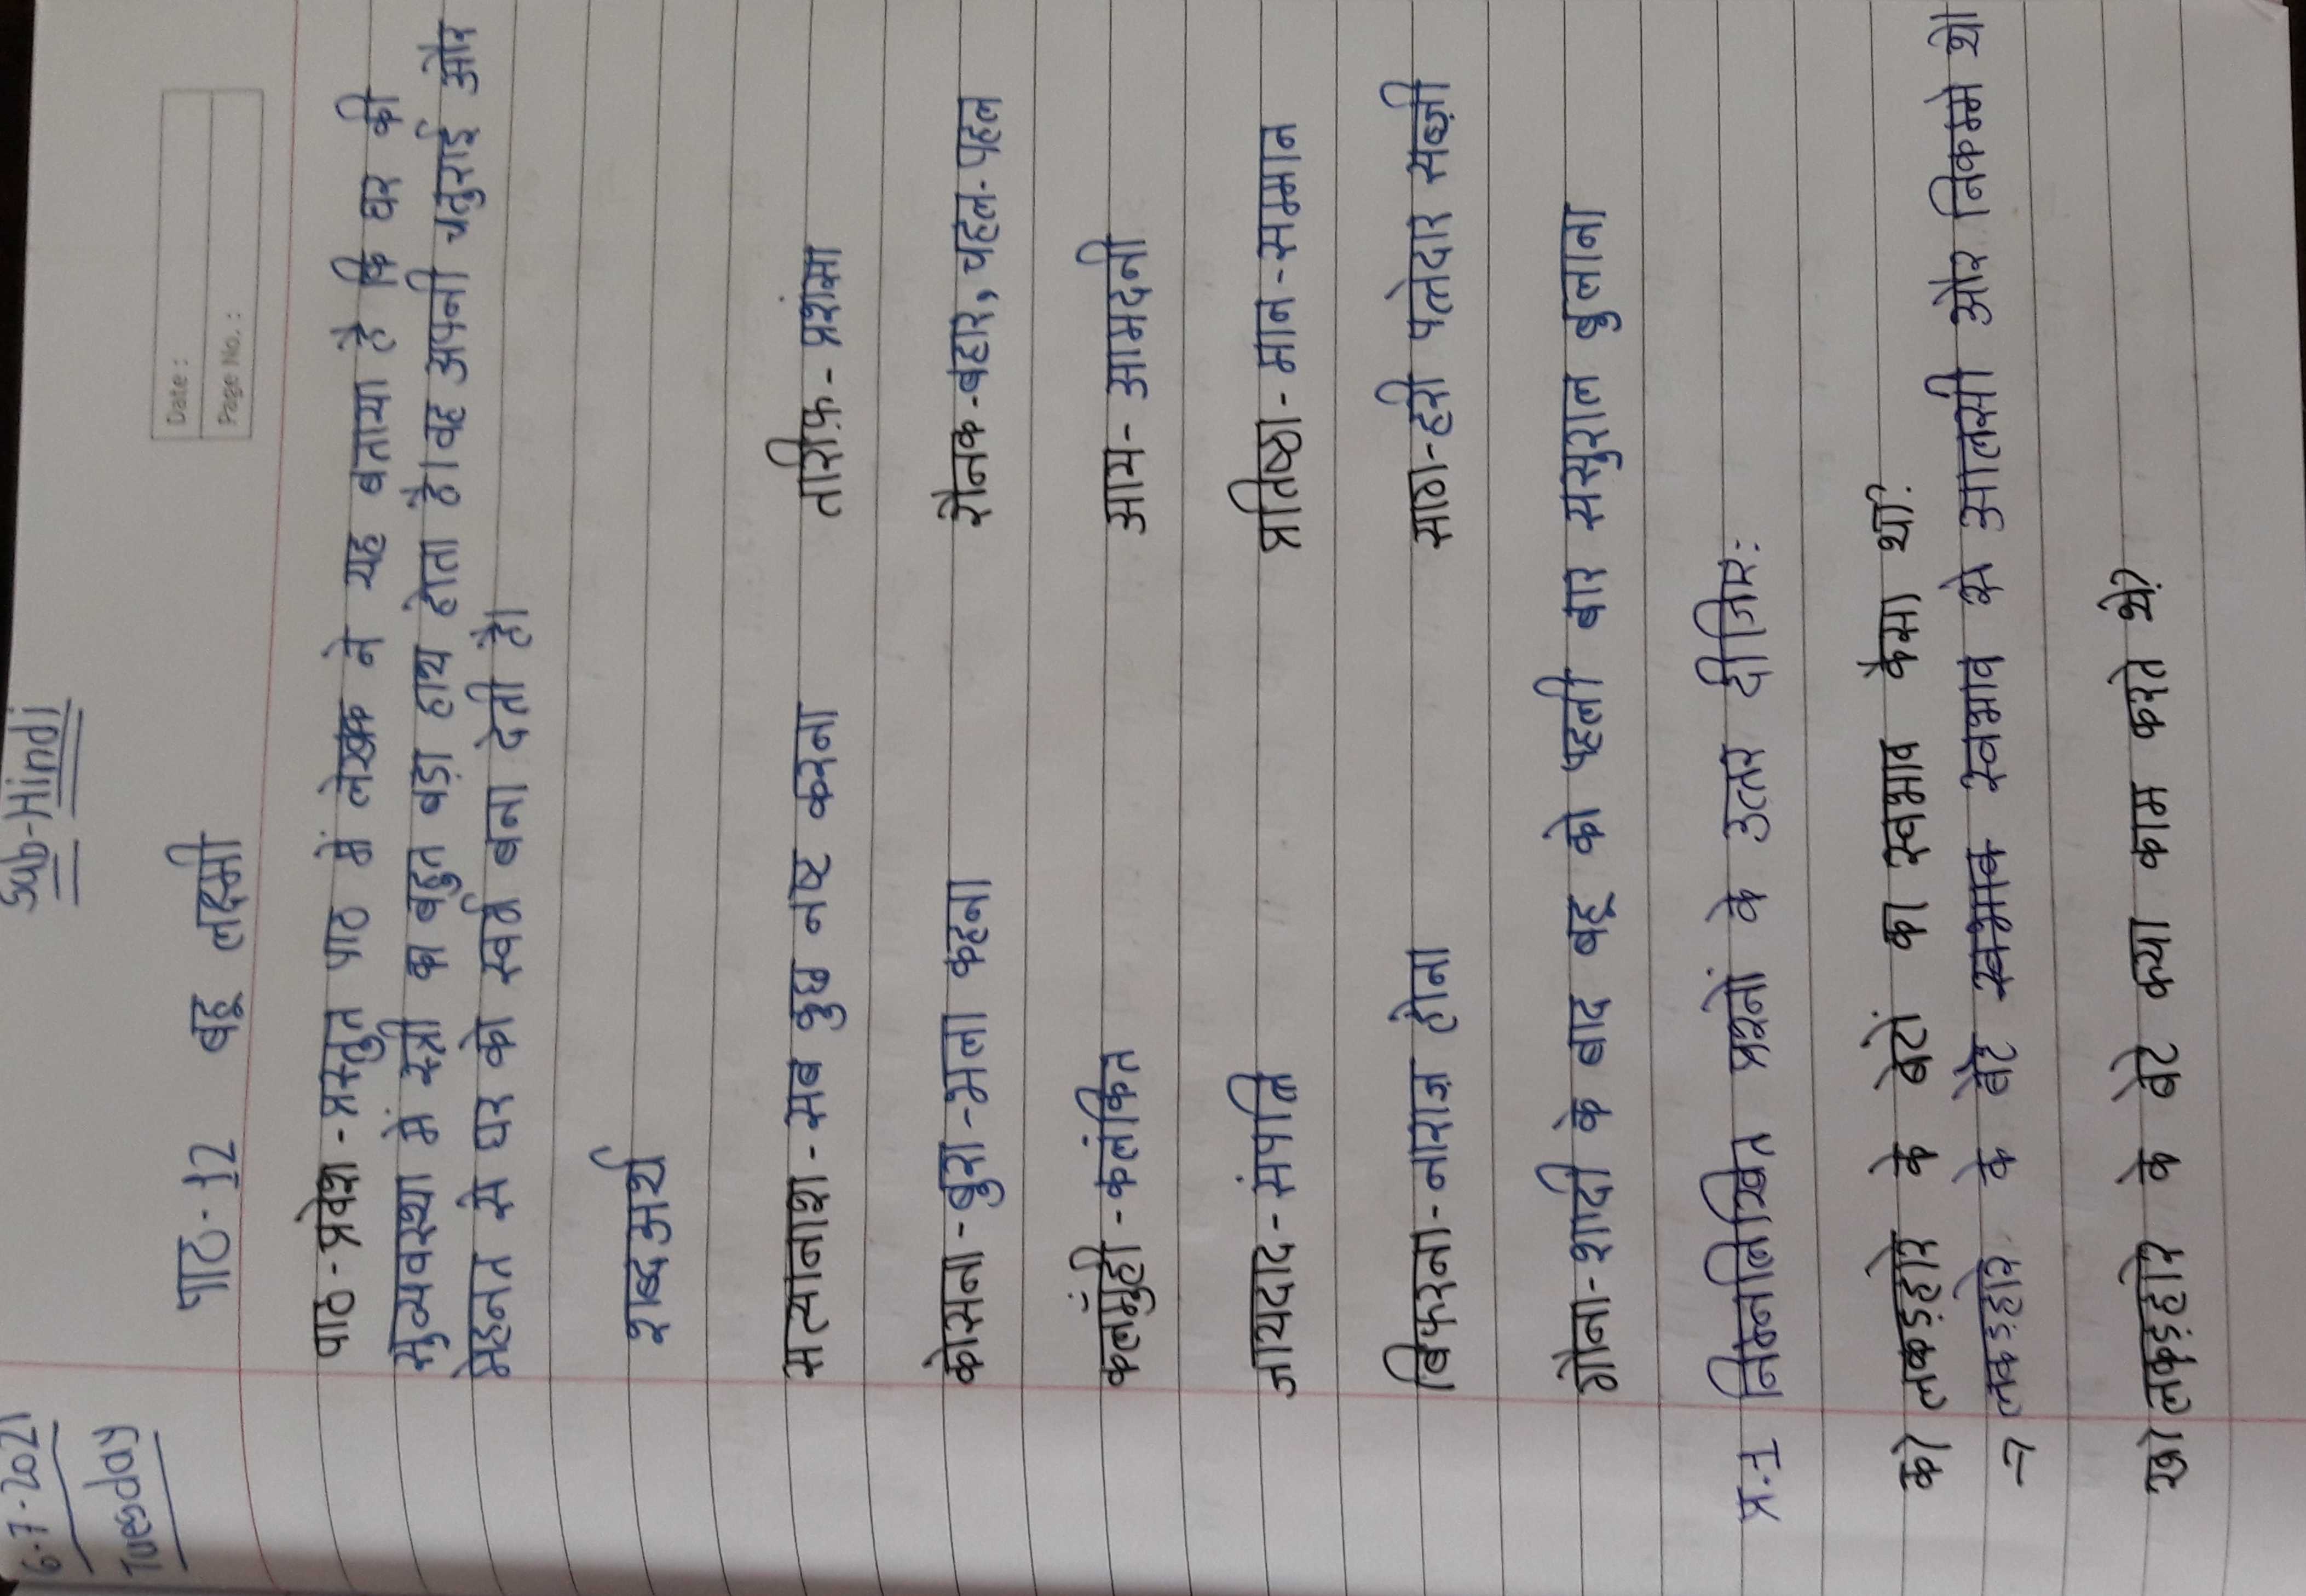 6.7.2021
Sub-Hindi
Tuesday
Date :
Page No. :
पाठ-12 बहू लक्ष्मी
पाठ-प्रवेश-प्रस्तुत पाठ में लेखक ने यह बताया है कि घर की
सुव्यवस्था में स्त्री का बहुत बड़ा हाथ होता है। वह अपनी चतुराई और
मेहनत से घर को स्वर्ग बना देती है।
शब्दअर्थ
सत्यानाश-सब कुछ नष्ट करना तारीफ़-प्रशंसा
कोसना-बुरा-भला कहना रौनक-बहार, चहल-पहल
कलमुँही-कलंकित आय-आमदनी
जायदाद-संपत्ति प्रतिष्ठा-मान-सम्मान
बिफरना-नाराज़ होना साठा-हरी पत्तेदार सब्ज़ी
गौना-शादी के बाद बहू को पहली बार ससुराल बुलाना
प्र.1 निम्नलिखित प्रश्नों के उत्तर दीजिए:
क) लकड़हारे के बेटों का स्वभाव कैसा था?
→ लकड़हारे के बेटे स्वभाव से आलसी और निकम्मे थे।
ख) लकड़हारे के बेटे क्या काम करते थे?